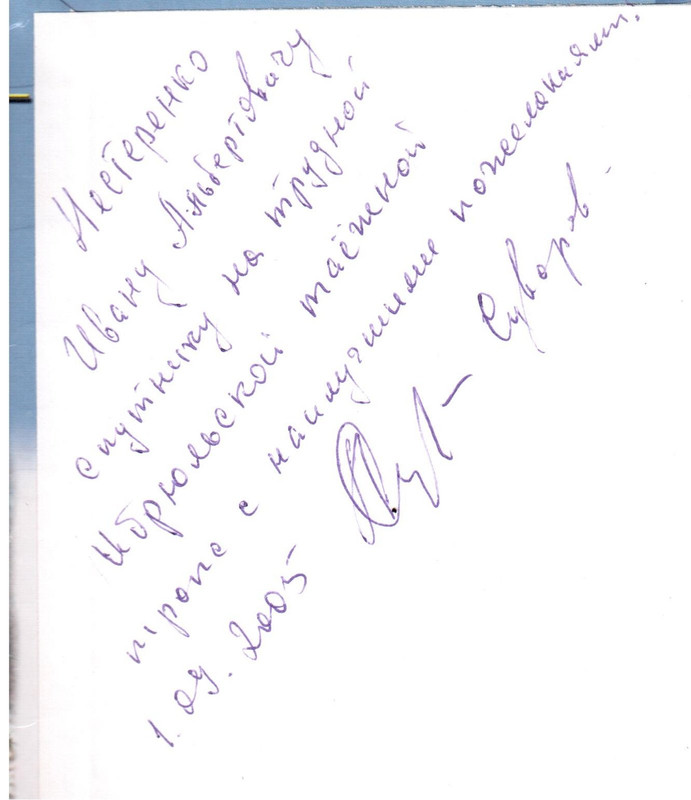 Нестеренко
Ивану Альбертовичу
спутнику на трудной
Ибрюльской таёжной
тропе с наилучшими пожеланиями.
1.09.2005 Суворов